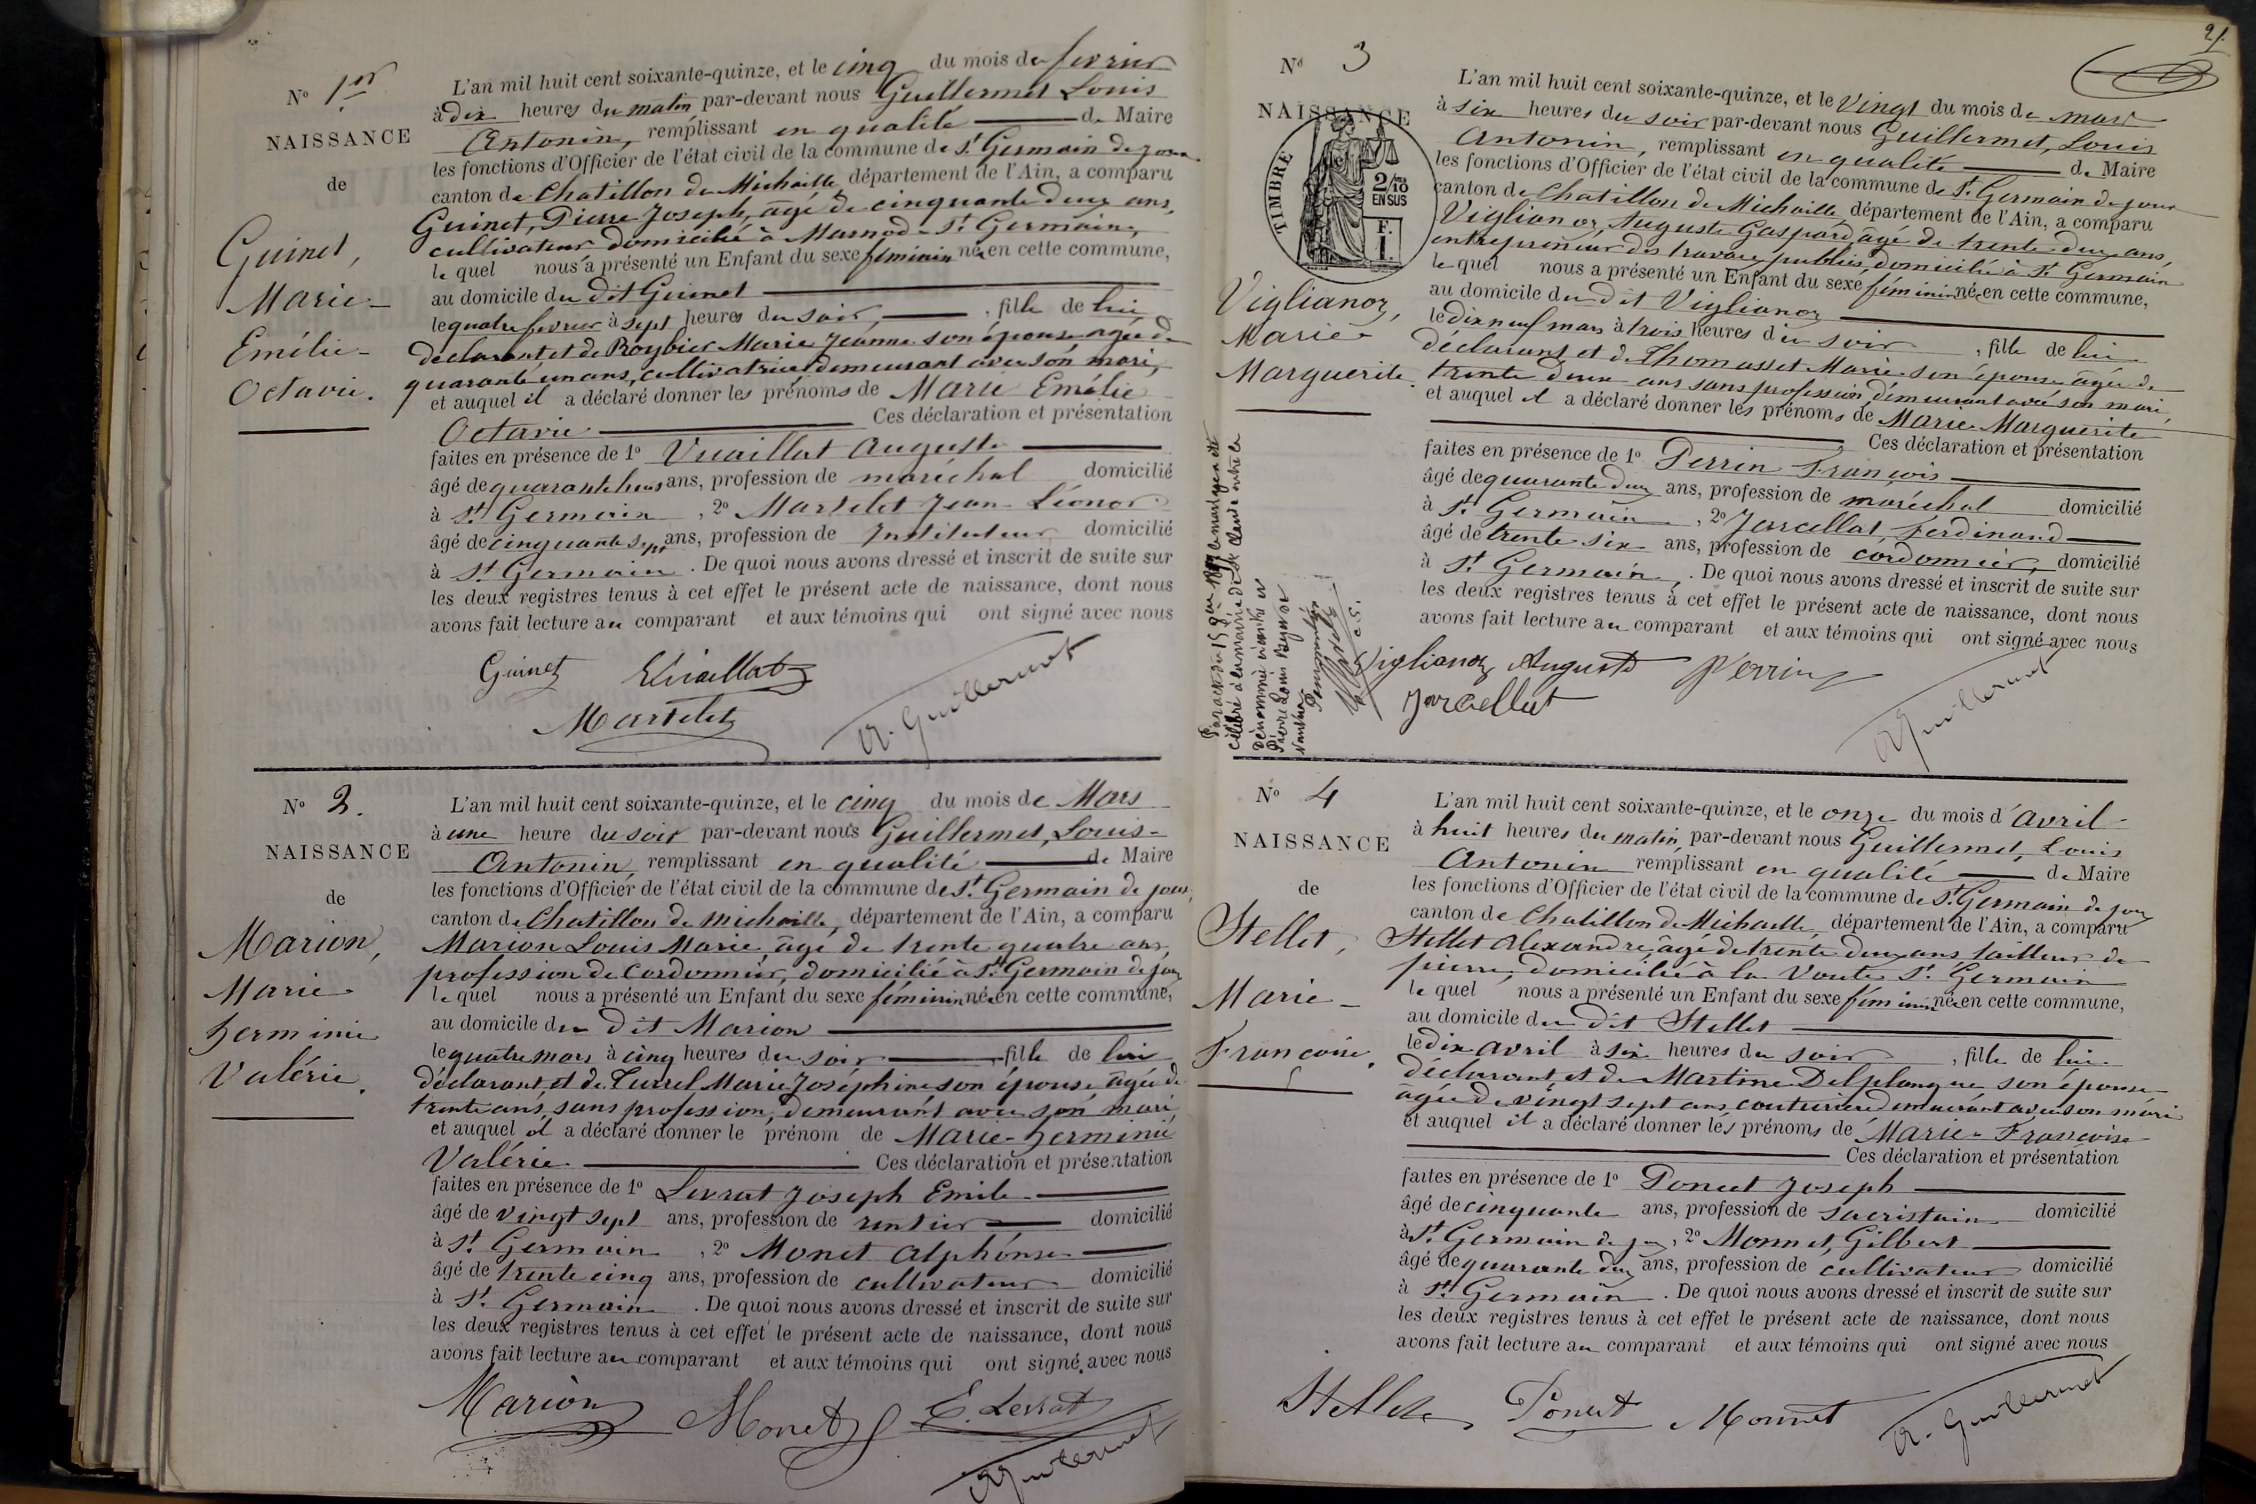 N° 1er
NAISSANCE
de
Guinet,
Marie-
Emélie-
Octavie.
L'an mil huit cent soixante-quinze, et le cinq du mois de fevrier
à dix heures du matin par-devant nous Guillermet Louis
Antonin, remplissant en qualité de Maire
les fonctions d'Officier de l'état civil de la commune de St Germain de joux
canton de Chatillon de Michaille département de l'Ain, a comparu
Guinet, Pierre Joseph, âgé de cinquante deux ans,
cultivateur domicilié à Marnod-St Germain,
le quel nous a présenté un Enfant du sexe féminin née en cette commune,
au domicile du dit Guinet
le quatre fevrier à sept heures du soir, fille de lui
déclarant et de Roybier Marie Jeanne son épouse agée de
quarante un ans, cultivatrice, demeurant avec son mari,
et auquel il a déclaré donner les prénoms de Marie Emélie
Octavie Ces déclaration et présentation
faites en présence de 1° Vuaillat Auguste
âgé de quarante ans, profession de maréchal domicilié
à St Germain, 2° Martelet Jean-Léonor
âgé de cinquante sept ans, profession de Instituteur domicilié
à St Germain. De quoi nous avons dressé et inscrit de suite sur
les deux registres tenus à cet effet le présent acte de naissance, dont nous
avons fait lecture au comparant et aux témoins qui ont signé avec nous
Guinet Vuaillat
Martelet A. Guillermet
N° 2.
NAISSANCE
de
Marion,
Marie
herminie
Valérie.
L'an mil huit cent soixante-quinze, et le cinq du mois de Mars
à une heure du soir par-devant nous Guillermet, Louis-
Antonin, remplissant en qualité de Maire
les fonctions d'Officier de l'état civil de la commune de St Germain de joux
canton de Chatillon de michaille, département de l'Ain, a comparu
Marion Louis Marie, âgé de trente quatre ans,
profession de Cordonnier, domicilié à St Germain de joux
le quel nous a présenté un Enfant du sexe féminin née en cette commune,
au domicile du dit Marion
le quatre mars à cinq heures du soir, fille de lui
déclarant et de Turrel Marie Joséphine son épouse, âgée de
trente ans, sans profession, demeurant avec son mari
et auquel il a déclaré donner le prénom de Marie-herminie
Valérie. Ces déclaration et présentation
faites en présence de 1° Levrat Joseph Emile
âgé de vingt sept ans, profession de rentier domicilié
à St Germain, 2° Monet Alphonse
âgé de trente cinq ans, profession de cultivateur domicilié
à St Germain. De quoi nous avons dressé et inscrit de suite sur
les deux registres tenus à cet effet le présent acte de naissance, dont nous
avons fait lecture au comparant et aux témoins qui ont signé avec nous
Marion Monet E. Levrat
A. Guillermet
21.
N° 3
NAISSANCE
TIMBRE
2/10
EN SUS
F.
1.
Viglianoz,
Marie-
Marguerite.
L'an mil huit cent soixante-quinze, et le vingt du mois de mars
à six heures du soir par-devant nous Guillermet, Louis
Antonin, remplissant en qualité de Maire
les fonctions d'Officier de l'état civil de la commune de St Germain de joux
canton de Chatillon de Michaille, département de l'Ain, a comparu
Viglianoz, Auguste Gaspard, âgé de trente deux ans,
entrepreneur des travaux publics, domicilié à St Germain
le quel nous a présenté un Enfant du sexe féminin née en cette commune,
au domicile du dit Viglianoz
le dix neuf mars à trois heures du soir, fille de lui
déclarant et de Thomasset Marie son épouse âgée de
trente deux ans sans profession, demeurant avec son mari,
et auquel il a déclaré donner les prénoms de Marie Marguerite
Ces déclaration et présentation
faites en présence de 1° Perrin François
âgé de quarante deux ans, profession de maréchal domicilié
à St Germain, 2° Jarcellat, ferdinand
âgé de trente six ans, profession de cordonnier, domicilié
à St Germain. De quoi nous avons dressé et inscrit de suite sur
les deux registres tenus à cet effet le présent acte de naissance, dont nous
avons fait lecture au comparant et aux témoins qui ont signé avec nous
Viglianoz Auguste Perrin
Jarcellat A Guillermet
célébré à la mairie de St Claude entre la
dénommée ci-contre et
Pierre Louis
N° 4
NAISSANCE
de
Stellet,
Marie-
Françoise.
L'an mil huit cent soixante-quinze, et le onze du mois d'avril
à huit heures du matin, par-devant nous Guillermet, Louis
Antonin remplissant en qualité de Maire
les fonctions d'Officier de l'état civil de la commune de St Germain de joux
canton de Chatillon de Michaille, département de l'Ain, a comparu
Stellet Alexandre, âgé de trente deux ans tailleur de
pierre, domicilié à la Voute St Germain
le quel nous a présenté un Enfant du sexe féminin née en cette commune,
au domicile du dit Stellet
le dix avril à six heures du soir, fille de lui
déclarant, et de Martine Delplanque son épouse
âgée de vingt sept ans, couturière demeurant avec son mari
et auquel il a déclaré donner les prénoms de Marie-Françoise
Ces déclaration et présentation
faites en présence de 1° Poncet Joseph
âgé de cinquante ans, profession de sacristain domicilié
à St Germain de joux, 2° Monnet, Gilbert
âgé de quarante deux ans, profession de cultivateur domicilié
à St Germain. De quoi nous avons dressé et inscrit de suite sur
les deux registres tenus à cet effet le présent acte de naissance, dont nous
avons fait lecture au comparant et aux témoins qui ont signé avec nous
Stellet Poncet Monnet A. Guillermet